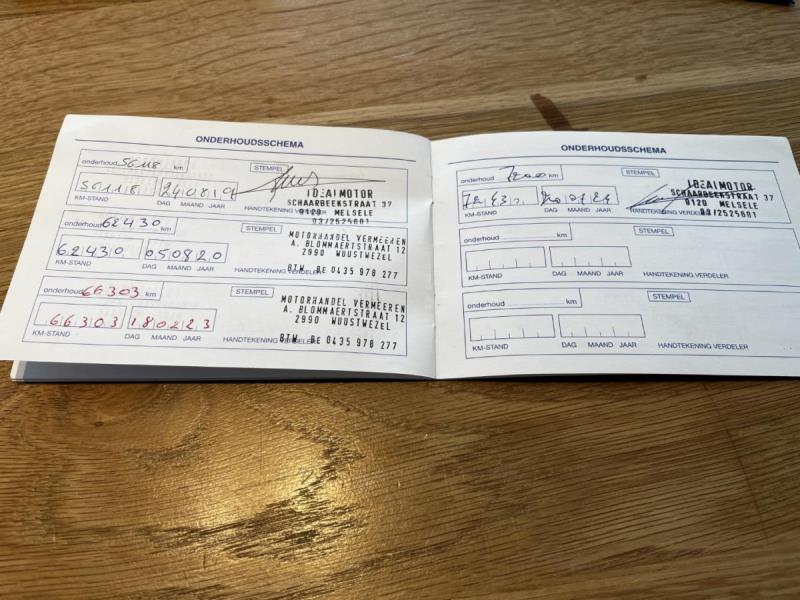 ONDERHOUDSSCHEMA
onderhoud 56118 km
STEMPEL
56118 240819
KM-STAND DAG MAAND JAAR HANDTEKENING VERDELER
IDEALMOTOR
SCHAARBEEKSTRAAT 37
9120 MELSELE
03/2525601
onderhoud 62430 km
STEMPEL
62430 050820
KM-STAND DAG MAAND JAAR HANDTEKENING VERDELER
MOTORHANDEL VERMEEREN
A. BLOMMAERTSTRAAT 12
2990 WUUSTWEZEL
BTW. Be 0435 978 277
onderhoud 66303 km
STEMPEL
66303 180223
KM-STAND DAG MAAND JAAR HANDTEKENING VERDELER
MOTORHANDEL VERMEEREN
A. BLOMMAERTSTRAAT 12
2990 WUUSTWEZEL
BTW. Be 0435 978 277
ONDERHOUDSSCHEMA
onderhoud km
STEMPEL
KM-STAND DAG MAAND JAAR HANDTEKENING VERDELER
IDEALMOTOR
SCHAARBEEKSTRAAT 37
9120 MELSELE
03/2525601
onderhoud km
STEMPEL
KM-STAND DAG MAAND JAAR HANDTEKENING VERDELER
onderhoud km
STEMPEL
KM-STAND DAG MAAND JAAR HANDTEKENING VERDELER